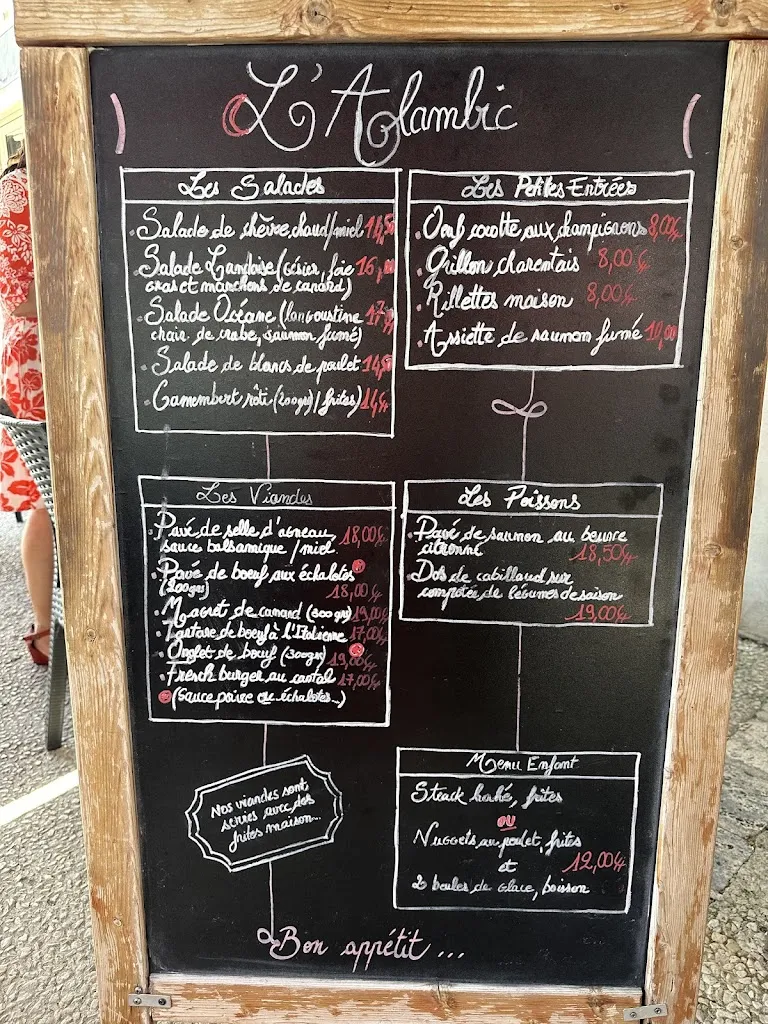 L'Alambic
Les Salades
. Salade de chèvre chaud/miel
. Salade Landaise (Gésier, foie 16,
gras et manchons de canard)
. Salade Océane (langoustine
chair de crabe, saumon fumé)
. Salade de blancs de poulet 14,50
. Camembert rôti (200grs)/frites) 14€
Les Petites Entrées
. Oeuf cocotte aux champignons 8,00€
. Grillon charentais 8,00€
. Rillettes maison 8,00€
. Assiette de saumon fumé 10,00
Les Viandes
. Pavé de selle d'agneau, 18,00€
sauce balsamique / miel
. Pavé de boeuf aux échalotes
(200grs) 18,00€
. Magret de canard (300grs) 19,00€
. Tartare de boeuf à l'Italienne 17,00€
. Onglet de boeuf (300grs) 19,00€
. French burger au cantal 17,00€
(Sauce poivre ou échalotes..)
Les Poissons
. Pavé de saumon au beurre
citronné 18,50€
. Dos de cabillaud sur
compotée de légumes de saison
19,00€
Nos viandes sont
servies avec des
frites maison...
Menu Enfant
Steack haché, frites
ou
Nuggets au poulet, frites
et 12,00€
2 boules de glace, boisson
Bon appétit ...